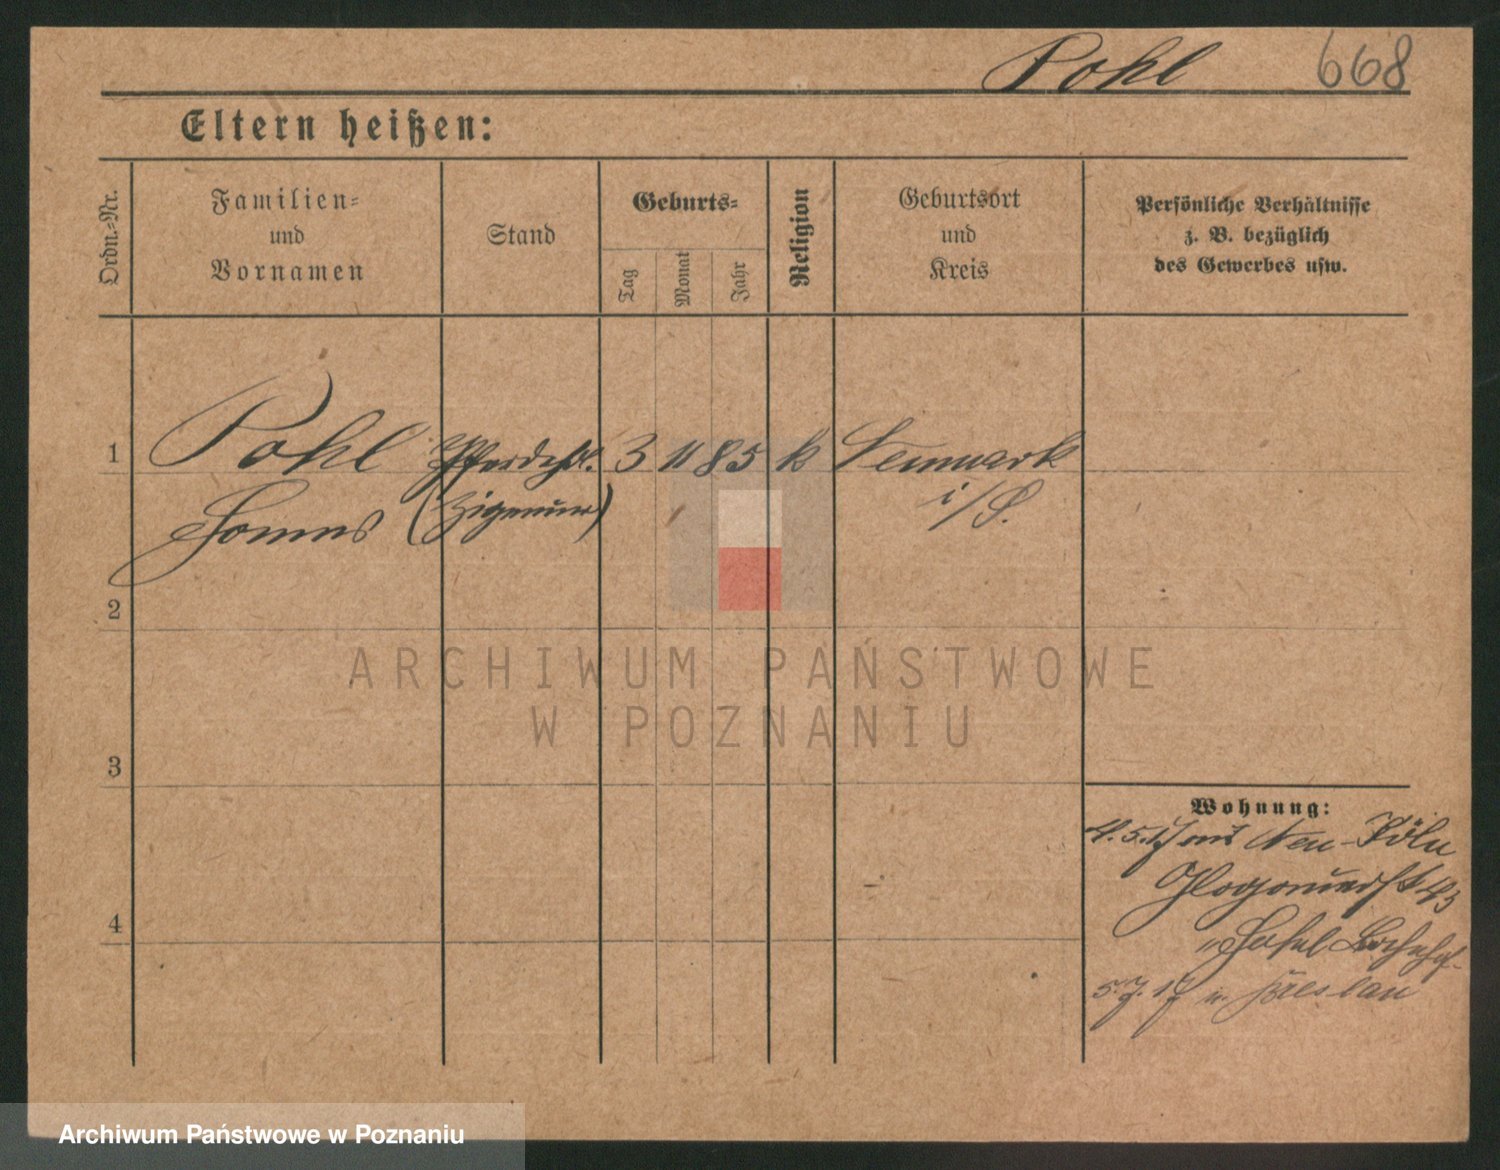 Pohl 668
Eltern heißen:
Ordn.-Nr.
Familien-
und
Vornamen
Stand
Geburts-
Tag
Monat
Jahr
Religion
Geburtsort
und
Kreis
Persönliche Verhältnisse
z. B. bezüglich
des Gewerbes usw.
1 Pohl Pferdehdl. 3 11 85 k Neumark
(Zigeuner) i/S.
2
3
4
Wohnung:
4.5.17 aus Neu-Köln
Glogauerst. 43
" Hotel
5.7.17 n. Breslau
ARCHIWUM PAŃSTWOWE
W POZNANIU
Archiwum Państwowe w Poznaniu